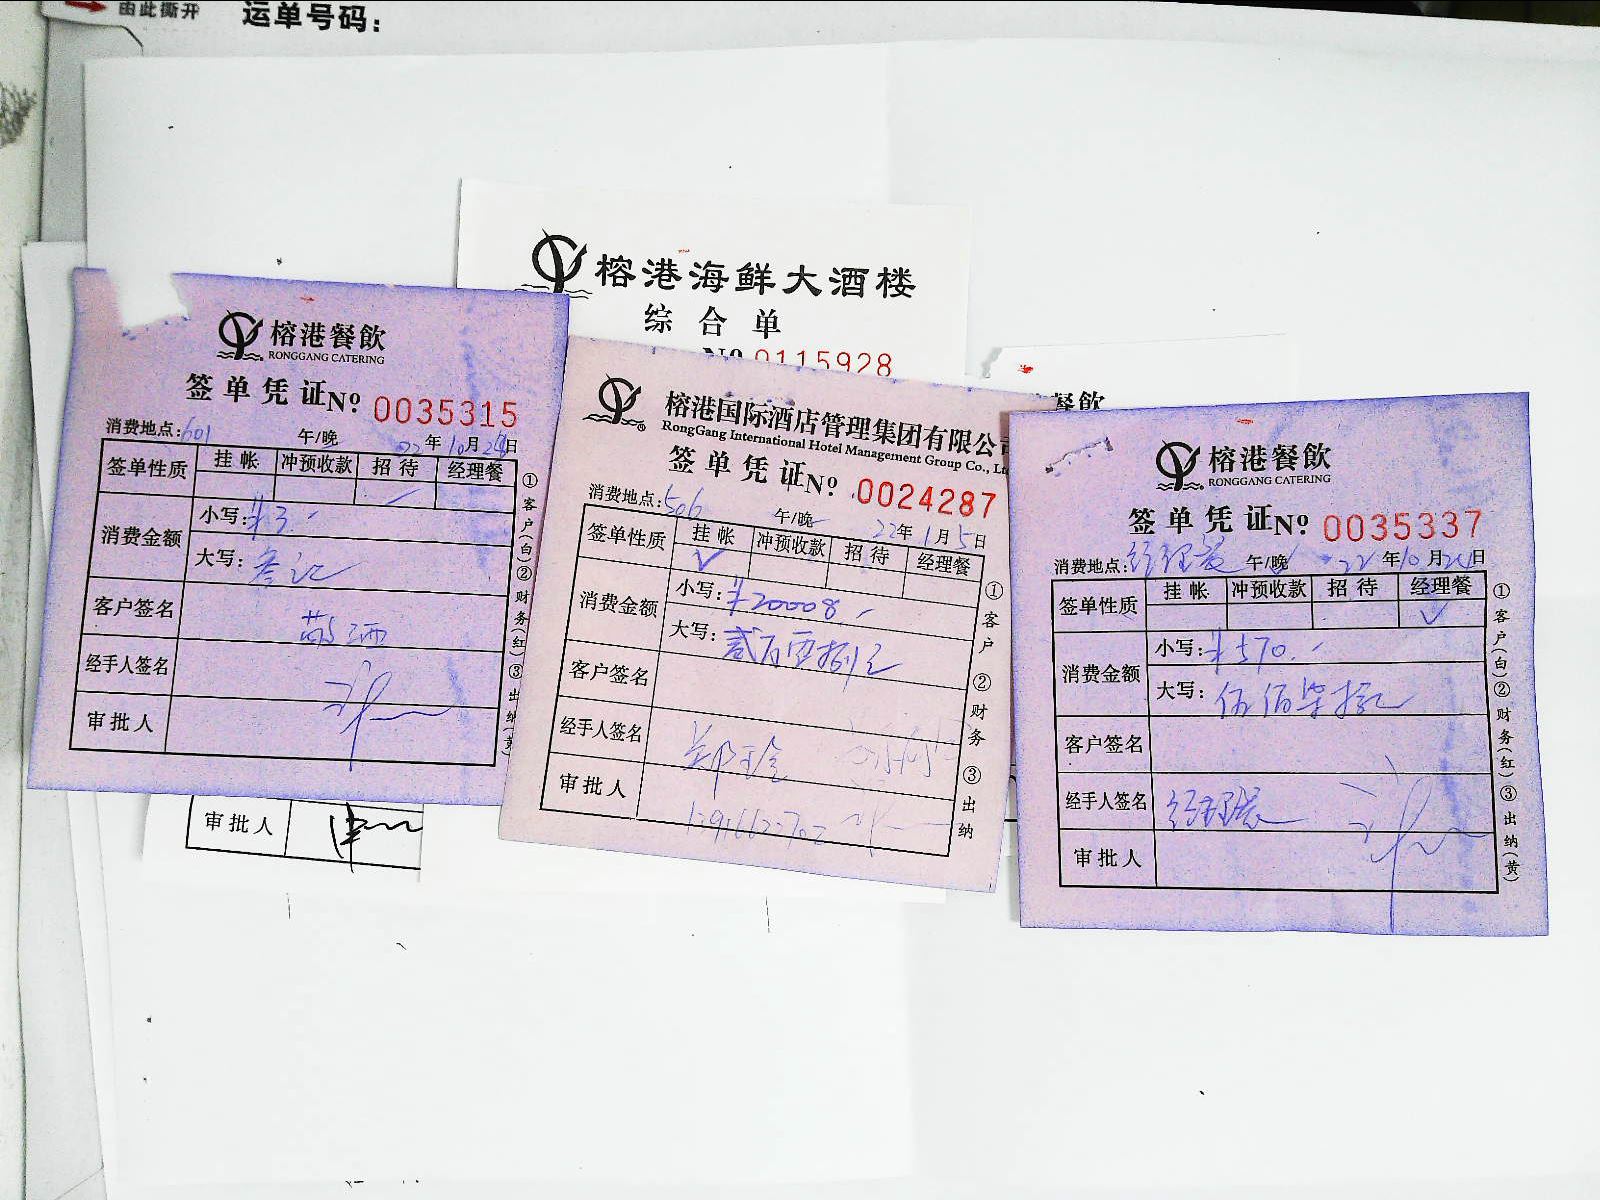 由此撕开
运单号码:
榕港海鲜大酒楼
综合单
Nº 0115928
榕港餐飲
RONGGANG CATERING
签单凭证Nº 0035315
消费地点:601 午/晚 22年10月24日
签单性质 挂帐 冲预收款 招待 经理餐
消费金额 小写:¥3.-
大写:叁元
客户签名
经手人签名
审批人
①客户(白)②财务(红)③出纳(黄)
审批人
榕港国际酒店管理集团有限公司
RongGang International Hotel Management Group Co., Lt
签单凭证Nº 0024287
消费地点:506 午/晚 22年1月5日
签单性质 挂帐 冲预收款 招待 经理餐
✓
消费金额 小写:¥20008.-
大写:
客户签名
经手人签名
审批人
①客户 ②财务 ③出纳
餐飲
榕港餐飲
RONGGANG CATERING
签单凭证Nº 0035337
消费地点: 午/晚 22年10月24日
签单性质 挂帐 冲预收款 招待 经理餐
✓
消费金额 小写:¥570.-
大写:伍佰柒拾元
客户签名
经手人签名
审批人
①客户(白)②财务(红)③出纳(黄)